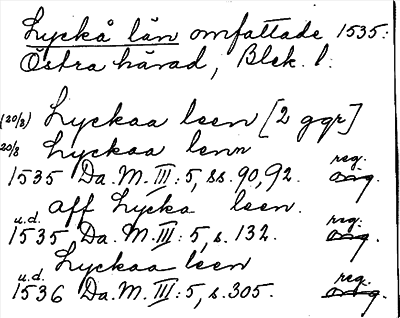 Lyckå län omfattade 1535:
Östra härad, Blek. l.
(20/8) Lyckaa leen [2 ggr]
20/8 Lyckaa lenn
1535 Da. M. III: 5, ss. 90, 92. reg. orig.
aff Lycka leen.
u.d. 1535 Da. M. III: 5, s. 132. reg. orig.
Lyckaa leen
u.d. 1536 Da. M. III: 5, s. 305. reg. orig.